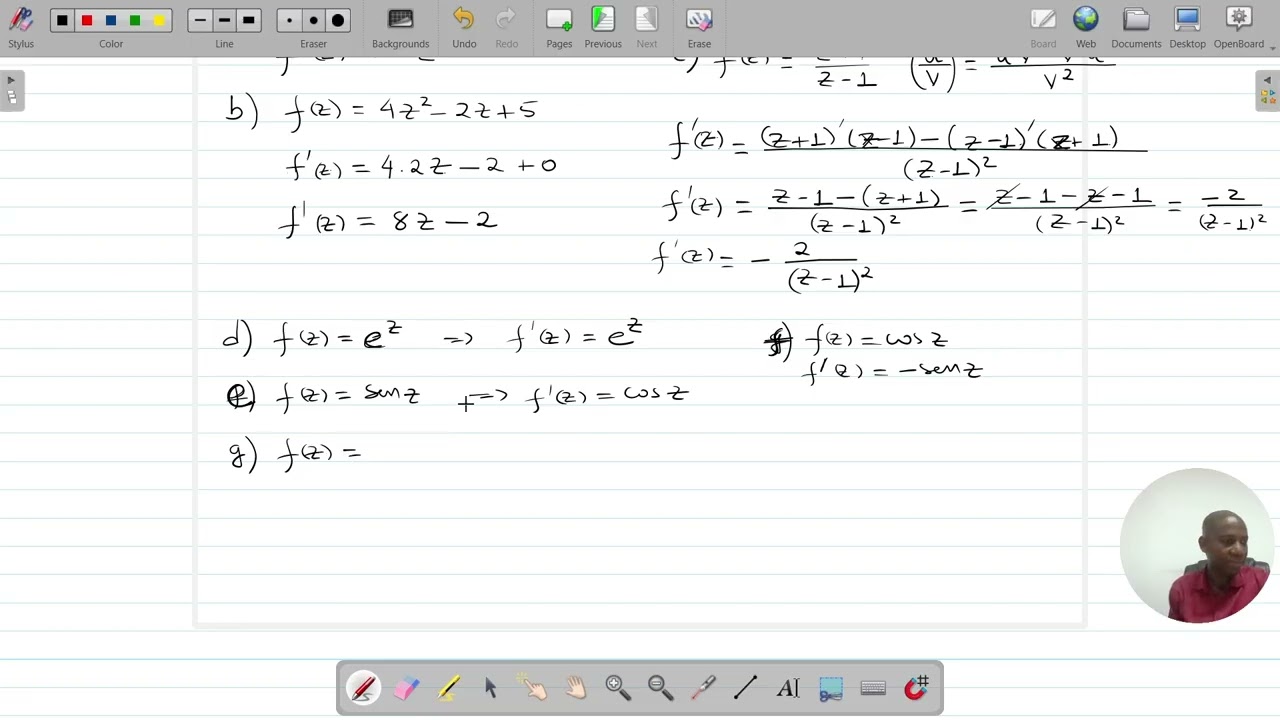 Stylus
Color
Line
Eraser
Backgrounds
Undo
Redo
Pages
Previous
Next
Erase
Board
Web
Documents
Desktop
OpenBoard
b) f(z) = 4z² - 2z + 5
f'(z) = 4.2z - 2 + 0
f'(z) = 8z - 2
f(z) = z - 1
(u/v) = v²
f'(z) = (z+1)'(z-1) - (z-1)'(z+1) / (z-1)²
f'(z) = z-1-(z+1) / (z-1)² = z-1-z-1 / (z-1)² = -2 / (z-1)²
f'(z) = - 2 / (z-1)²
d) f(z) = e^z => f'(z) = e^z
f) f(z) = cos z
f'(z) = -sen z
e) f(z) = sen z => f'(z) = cos z
g) f(z) =
AI